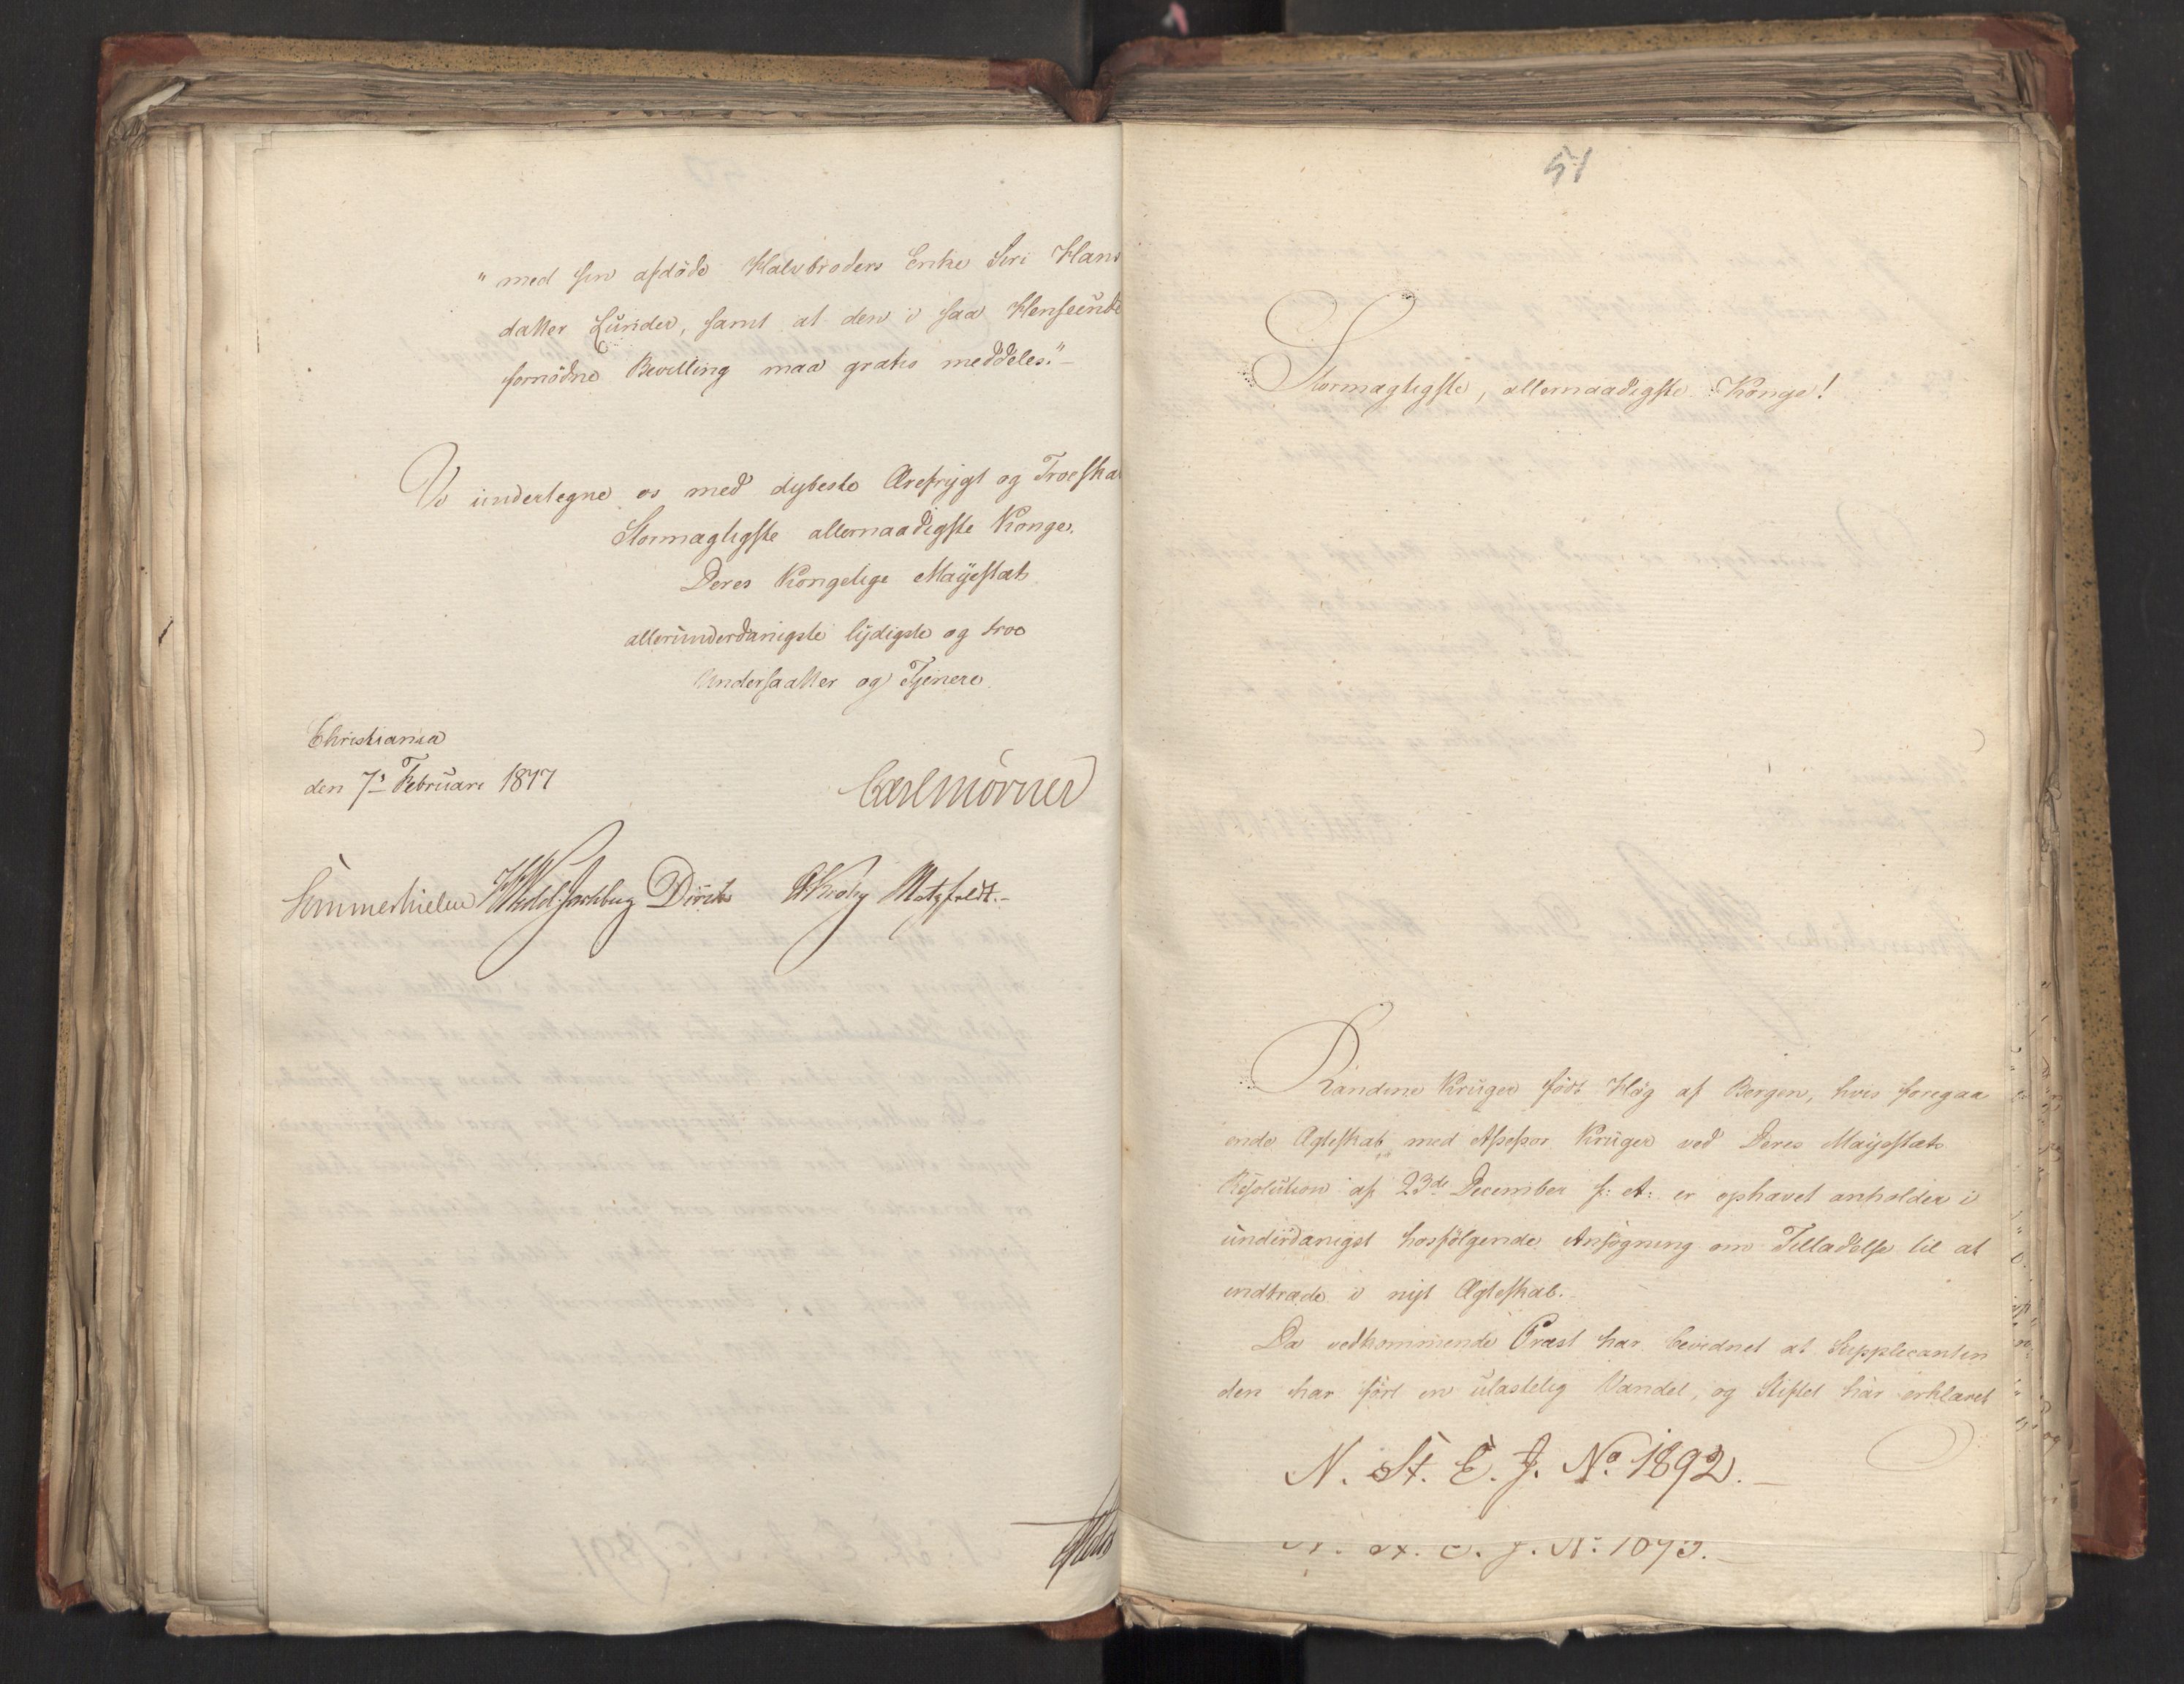 "med sin afdöde Halvbroders Enke Siri Hans
datter Lunder, samt at den i saa Henseende
fornödne Bevilling maa gratis meddeles."
Vi undertegne os med dybeste Ærefrygt og Troeskab
Stormægtigste allernaadigste Konge
Deres Kongelige Majestæts
allerunderdanigste lydigste og troe
Undersaatter og Tjenere
Christiania
den 7de Februari 1817
Carl Mörner
Sommerhielm Wedel Jarlsberg Diriks Krohg Motzfeldt.
51
Stormægtigste, allernaadigste Konge!
Randine Krüger född Hög af Bergen, hvis foregaa
ende Ægteskab med Assessor Krüger ved Deres Majestæts
Resolution af 23de December f: A: er ophævet anholder i
underdanigst hosfölgende Ansögning om Tilladelse til at
indtræde i nyt Ægteskab.
Da vedkommende Præst har bevidnet at Supplicantin
den har fört en ulastelig Vandel, og Stiftet har erklæret
N. St. E. J. No. 1892.